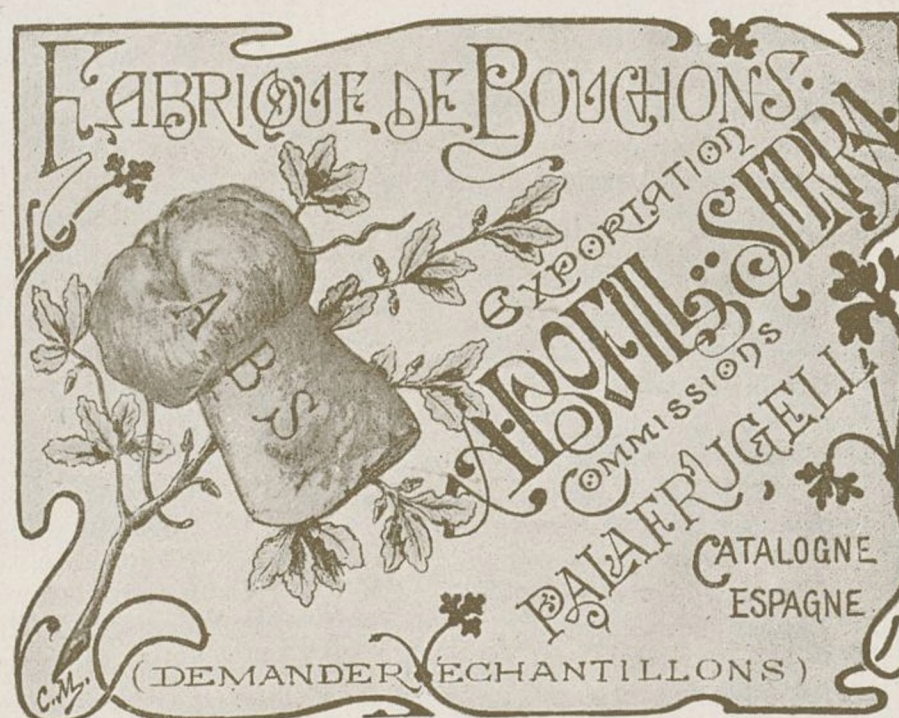 FABRIQUE DE BOUCHONS.
EXPORTATION
A. BOFILL SERRA.
COMMISSIONS
PALAFRUGELL
CATALOGNE
ESPAGNE
A
B S
(DEMANDER ECHANTILLONS)
C.M.